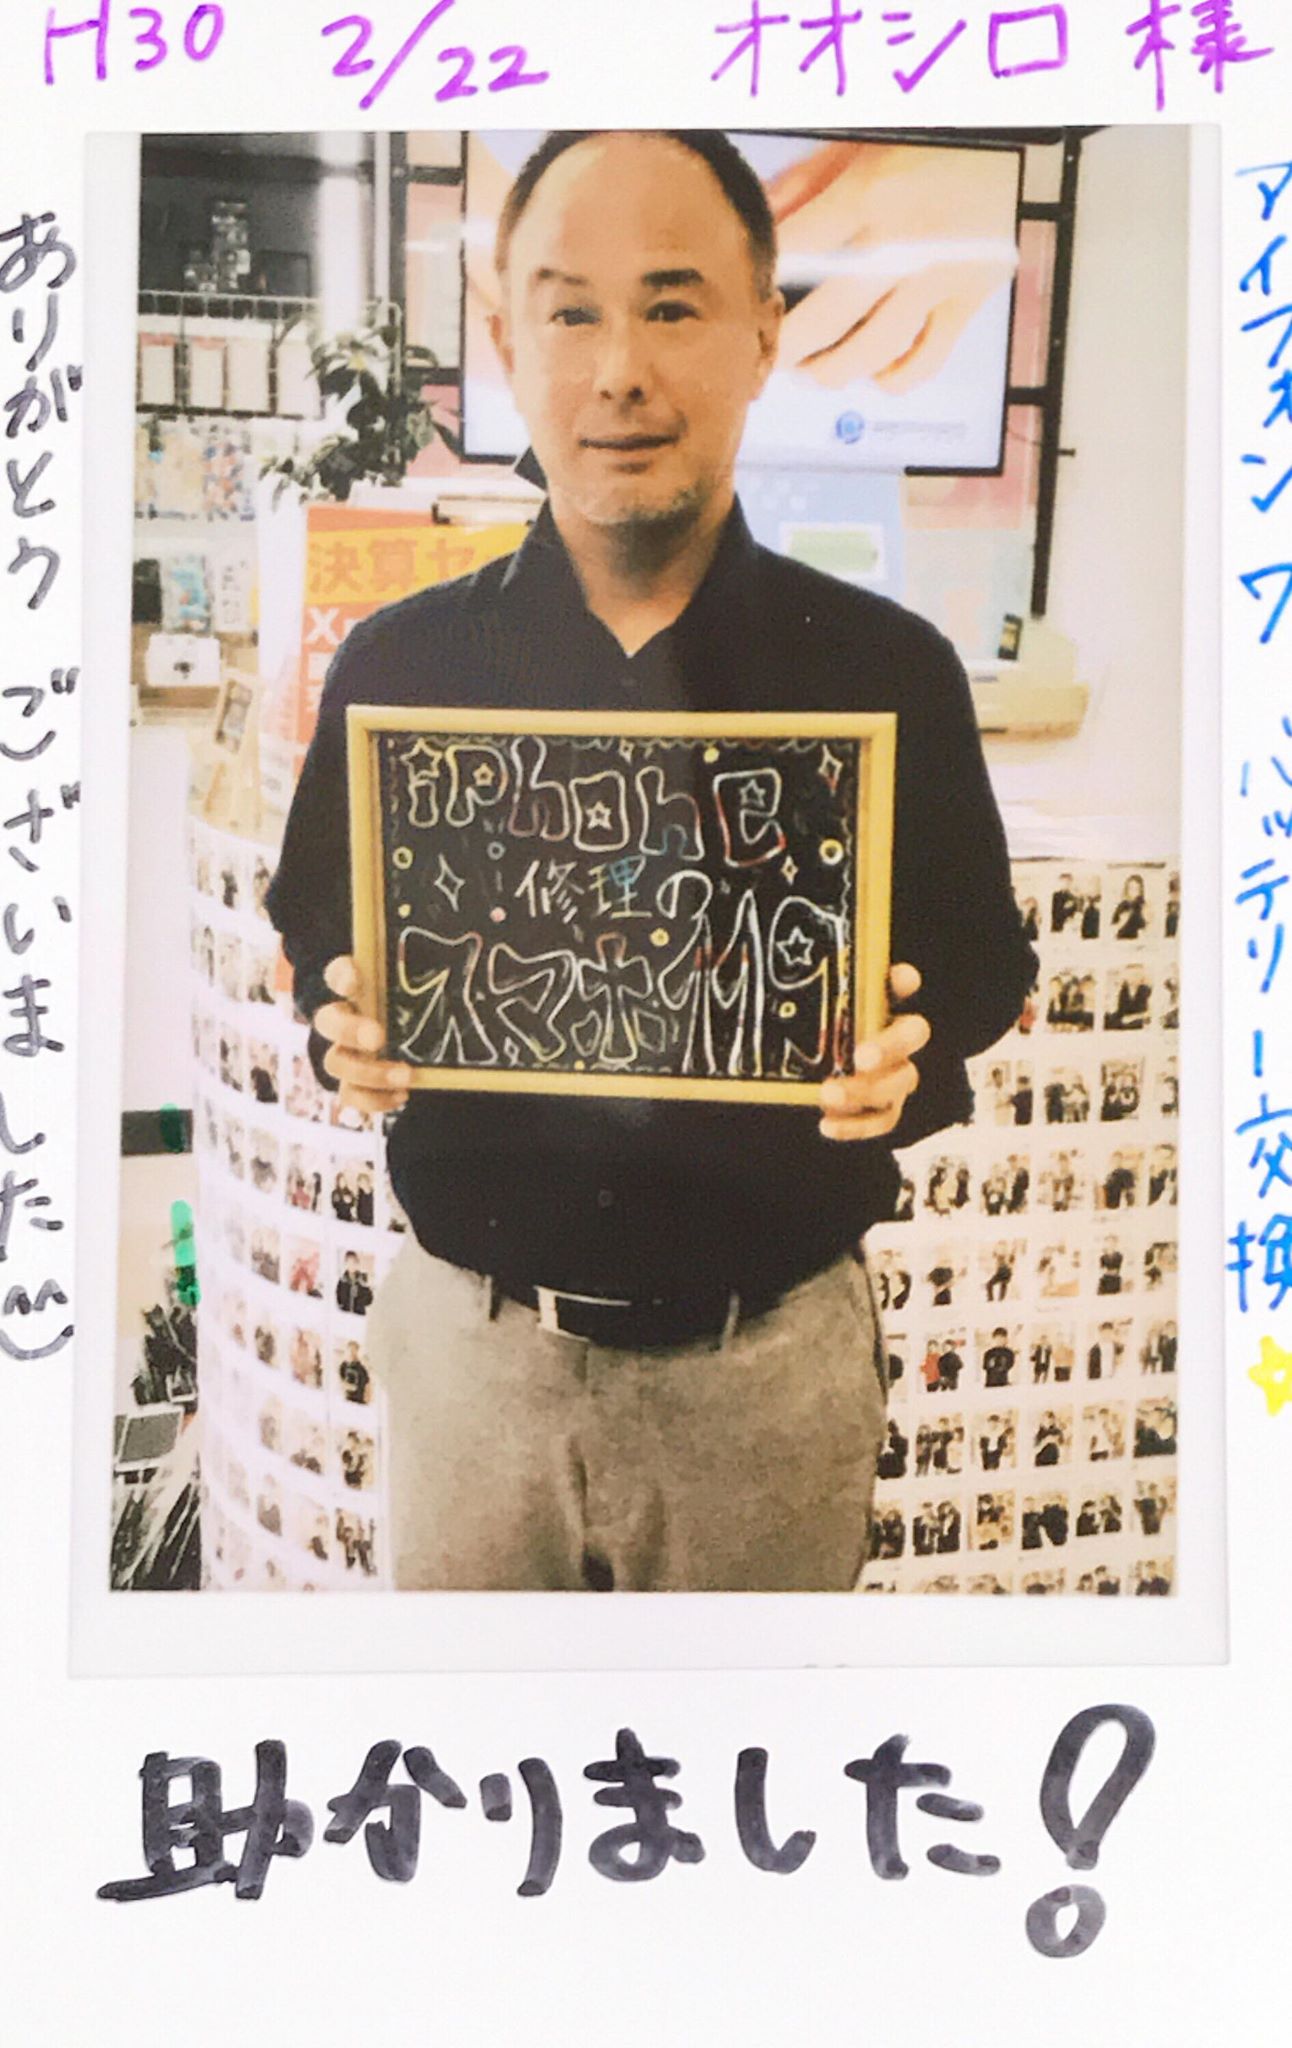 H30 2/22 オオシロ様
アイフォン7 バッテリー交換
ありがとうございました
決算セ
X
iPhone
修理の
スマホ119
助かりました!